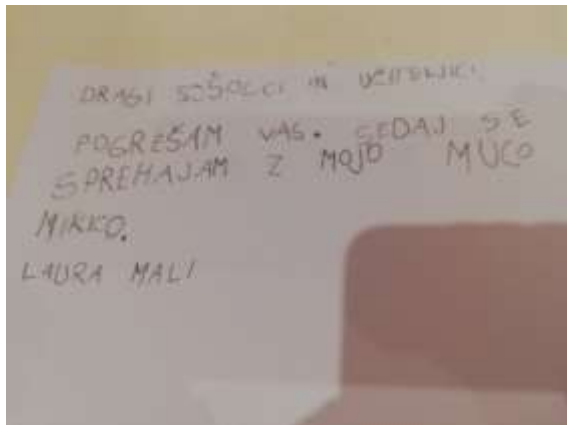 DRAGI SOŠOLCI IN UČITELJICI,
POGREŠAM VAS. SEDAJ SE
SPREHAJAM Z MOJO MUCO
MIKKO.
LAURA MALI